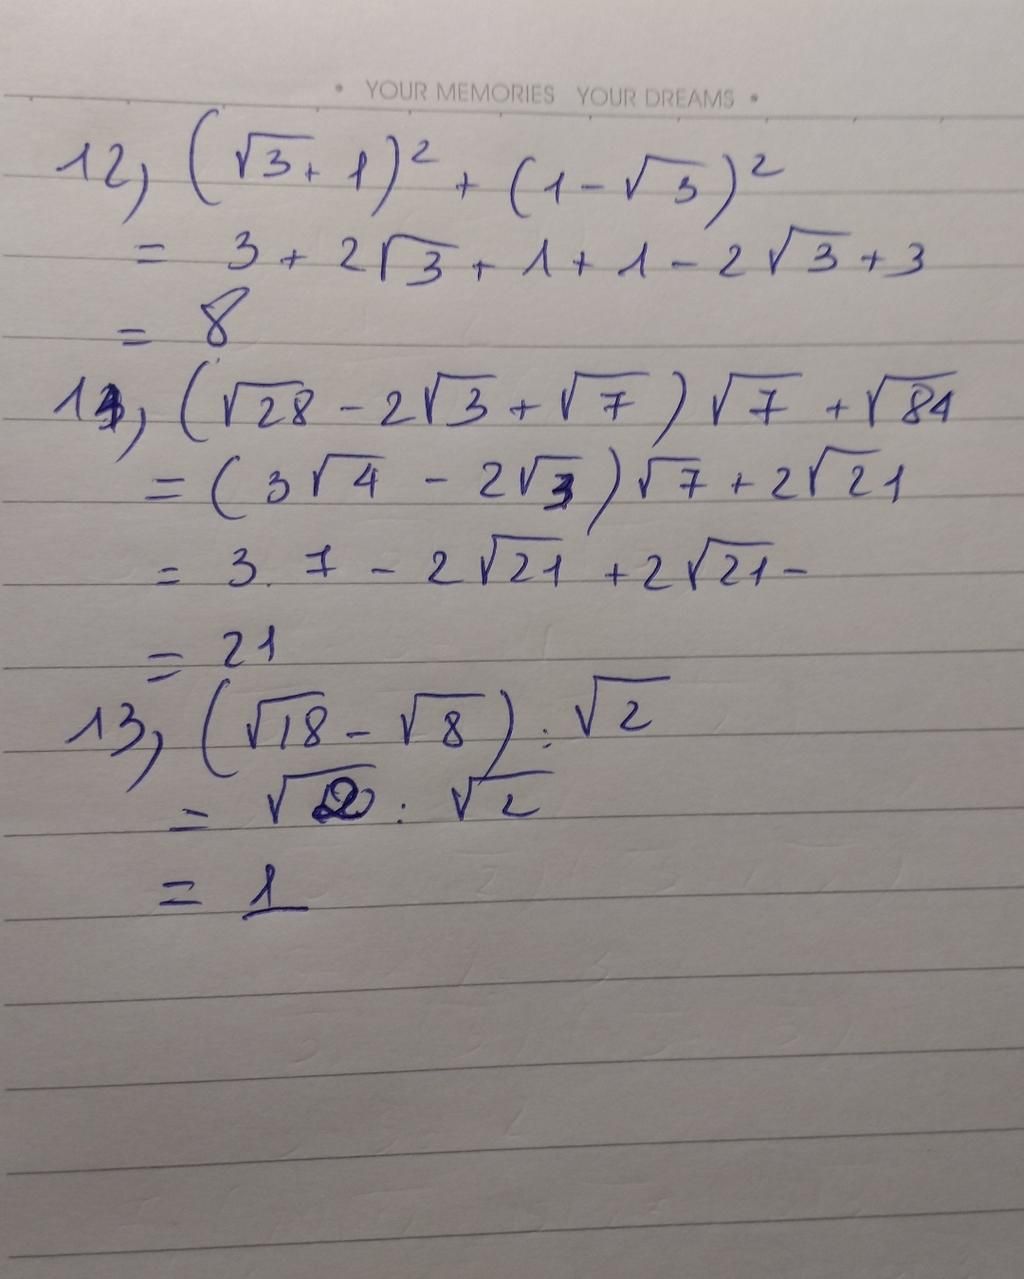 • YOUR MEMORIES YOUR DREAMS •
12, (√3 + 1)² + (1 - √3)²
= 3 + 2√3 + 1 + 1 - 2√3 + 3
= 8
11, (√28 - 2√3 + √7) √7 + √84
= (3√4 - 2√3) √7 + 2√21
= 3. 7 - 2√21 + 2√21 -
= 21
13, (√18 - √8) : √2
= √2 : √2
= 1